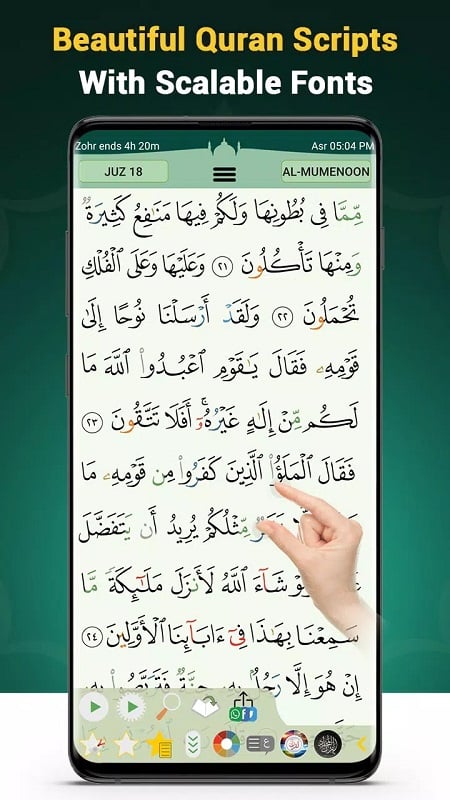 Beautiful Quran Scripts
With Scalable Fonts
Zohr ends 4h 20m
Asr 05:04 PM
JUZ 18
AL-MUMENOON
مِّمَّا فِي بُطُونِهَا وَلَكُمۡ فِيهَا مَنَٰفِعُ كَثِيرَةٞ
وَمِنۡهَا تَأۡكُلُونَ ٢١ وَعَلَيۡهَا وَعَلَى ٱلۡفُلۡكِ
تُحۡمَلُونَ ٢٢ وَلَقَدۡ أَرۡسَلۡنَا نُوحًا إِلَىٰ
قَوۡمِهِۦ فَقَالَ يَٰقَوۡمِ ٱعۡبُدُواْ ٱللَّهَ مَا
لَكُم مِّنۡ إِلَٰهٍ غَيۡرُهُۥٓۚ أَفَلَا تَتَّقُونَ ٢٣
فَقَالَ ٱلۡمَلَؤُاْ ٱلَّذِينَ كَفَرُواْ مِن قَوۡمِهِۦ مَا
مِّثۡلُكُمۡ يُرِيدُ أَن يَتَفَضَّلَ
شَآءَ ٱللَّهُ لَأَنزَلَ مَلَٰٓئِكَةٗ مَّا
سَمِعۡنَا بِهَٰذَا فِيٓ ءَابَآئِنَا ٱلۡأَوَّلِينَ ٢٤
إِنۡ هُوَ إِلَّا رَجُلُۢ بِهِۦ جِنَّةٞ فَتَرَبَّصُواْ بِهِۦ